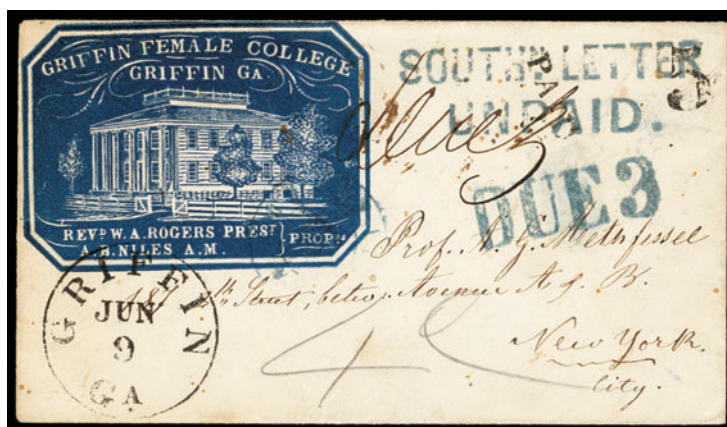 GRIFFIN FEMALE COLLEGE
GRIFFIN GA.
REVD. W. A. ROGERS PREST.
A. B. NILES A.M.
PROPRS.
SOUTHN. LETTER
UNPAID.
PAID
5
Due 3
DUE 3
GRIFFIN
JUN
9
GA
Prof. A. G. Methfessel
Street, betw. Avenue A & B.
New York
City.